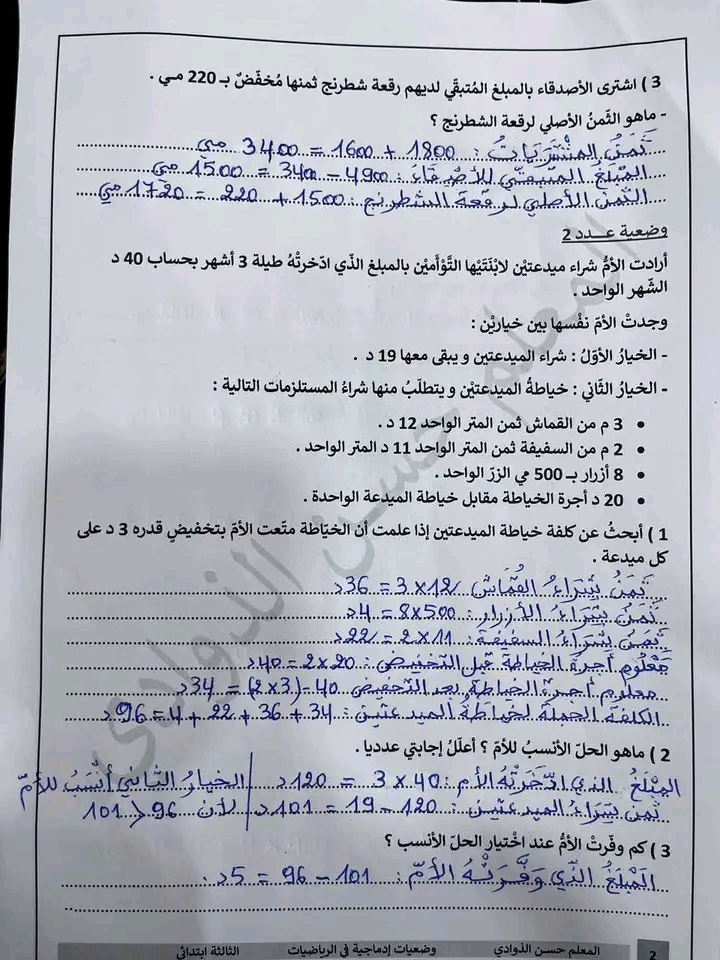 3 ) اشترى الأصدقاء بالمبلغ المُتبقَّي لديهم رقعة شطرنج ثمنها مُخفَضٌ بـ 220 مي .
- ماهو الثّمنُ الأصلي لرقعة الشطرنج ؟
ثَمَنُ المُشْتَرَيَاتُ : 1800 + 1600 = 3400 مي
المَبْلَغُ المتبقّي للأصدقاء : 4900 - 3400 = 1500 مي
الثّمن الأصلي لرقعة الشطرنج : 1500 + 220 = 1720 مي
وضعية عـــدد 2
أرادت الأمُّ شراء ميدعتيْن لابْنَتَيْها التَّوْأَميْن بالمبلغ الذّي ادّخرتْهُ طيلة 3 أشهر بحساب 40 د
الشّهر الواحد .
وجدتْ الأمّ نفْسها بين خياريْن :
- الخيارُ الأوّلُ : شراء الميدعتين و يبقى معها 19 د .
- الخيارُ الثّاني : خياطةُ الميدعتيْن و يتطلّبُ منها شراءُ المستلزمات التالية :
• 3 م من القماش ثمن المتر الواحد 12 د .
• 2 م من السفيفة ثمن المتر الواحد 11 د المتر الواحد .
• 8 أزرار بـ 500 مي الزرّ الواحد .
• 20 د أجرة الخياطة مقابل خياطة الميدعة الواحدة .
1 ) أبحثُ عن كلفة خياطة الميدعتين إذا علمت أن الخيّاطة متّعت الأمّ بتخفيضٍ قدره 3 د على
كل ميدعة .
ثَمَنُ شِرَاءُ القُمَاشِ 12 × 3 = 36 د
ثَمَنُ شِرَاءُ الأزرار : 500 × 8 = 4 د
ثمن شراء السفيفة : 11 × 2 = 22 د
مَعْلُوم أجرة الخياطة قبل التخفيض : 20 × 2 = 40 د
معلوم أجرة الخياطة بعد التخفيض 40 - (3 × 2) = 34 د
الكلفة الجملة لخياطة الميدعتين : 34 + 36 + 22 + 4 = 96 د
2 ) ماهو الحلّ الأنسبُ للأمّ ؟ أعلّلُ إجابتي عدديا .
المَبْلَغُ الذي ادّخَرَتْهُ الأم : 40 × 3 = 120 د
ثمن شِرَاءُ الميدعتين : 120 - 19 = 101 د
الخيار الثّاني أنْسَبُ للأمّ
لأن 96 < 101
3 ) كم وفّرتْ الأمُّ عند اخْتيار الحلّ الأنسب ؟
الْمَبْلَغُ الذّي وَفَّرَتْهُ الأمّ : 101 - 96 = 5 د
2
المعلم حسـن الذوادي
وضعيات إدماجية في الرياضيات
الثالثة ابتدائي
المعلم حسـن الذوادي